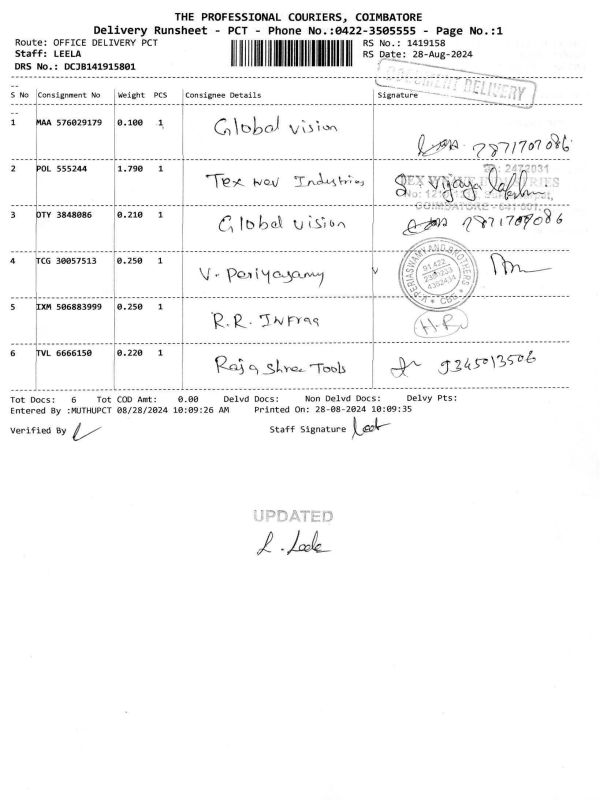 THE PROFESSIONAL COURIERS, COIMBATORE
Delivery Runsheet - PCT - Phone No.:0422-3505555 - Page No.:1
Route: OFFICE DELIVERY PCT RS No.: 1419158
Staff: LEELA RS Date: 28-Aug-2024
DRS No.: DCJB141915801
DOCUMENT DELIVERY
S No Consignment No Weight PCS Consignee Details Signature
1 MAA 576029179 0.100 1 Global vision
7871707086
2 POL 555244 1.790 1 Tex Nev Industries Vijaya lakshmi
3 OTY 3848086 0.210 1 Global vision 7871707086
4 TCG 30057513 0.250 1 V. Periyasamy
V. PERIASWAMY AND BROTHERS
CBE
5 IXM 506883999 0.250 1 R.R. Infraa
6 TVL 6666150 0.220 1 Rajashree Tools 9345013506
Tot Docs: 6 Tot COD Amt: 0.00 Delvd Docs: Non Delvd Docs: Delvy Pts:
Entered By :MUTHUPCT 08/28/2024 10:09:26 AM Printed On: 28-08-2024 10:09:35
Verified By Staff Signature
UPDATED
L. Leela